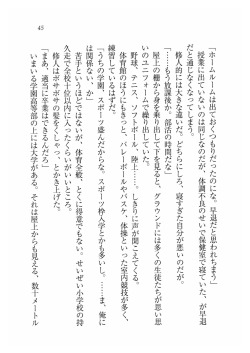 45
「ホームルームは出ておくつもりだったのにな。早退だと思われちまう」
授業に出ていないのは同じなのだが、体調不良のせいで保健室で寝ていた、が早退
だと通じなくなってしまう。
修人的には大きな違いだ。どちらにしろ、寝すぎた自分が悪いのだが。
「……もう放課後か。部活の時間だな」
屋上の柵から身を乗り出して下を見ると、グラウンドには多くの生徒たちが思い思
いのユニフォームで繰り出していた。
野球、テニス、ソフトボール、陸上……。しきりに声が聞こえてくる。
体育館のほうにもきっと、バレーボールやバスケ、体操といった室内競技が多く、
練習しているはずだ。
「うちの学園、スポーツ盛んだからな。スポーツ枠入学とかも多いし。……ま、俺に
は関係ないか」
苦手というほどではないが、体育全般、とくに得意でもない。せいぜい小学校の持
久走で全校十位以内に入ったくらいがいいところだ。
修人はボサボサの髪をくしゃっとかき上げた。
「まあ、適当に卒業はできるんだろ」
いまいる学園高等部の上には大学がある。それは屋上からも見える、数十メートル